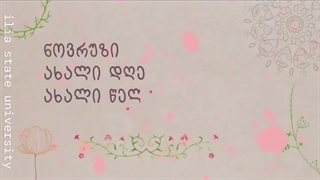 ნოვრუზი
ახალი დღე
ახალი წელ
ilia state university